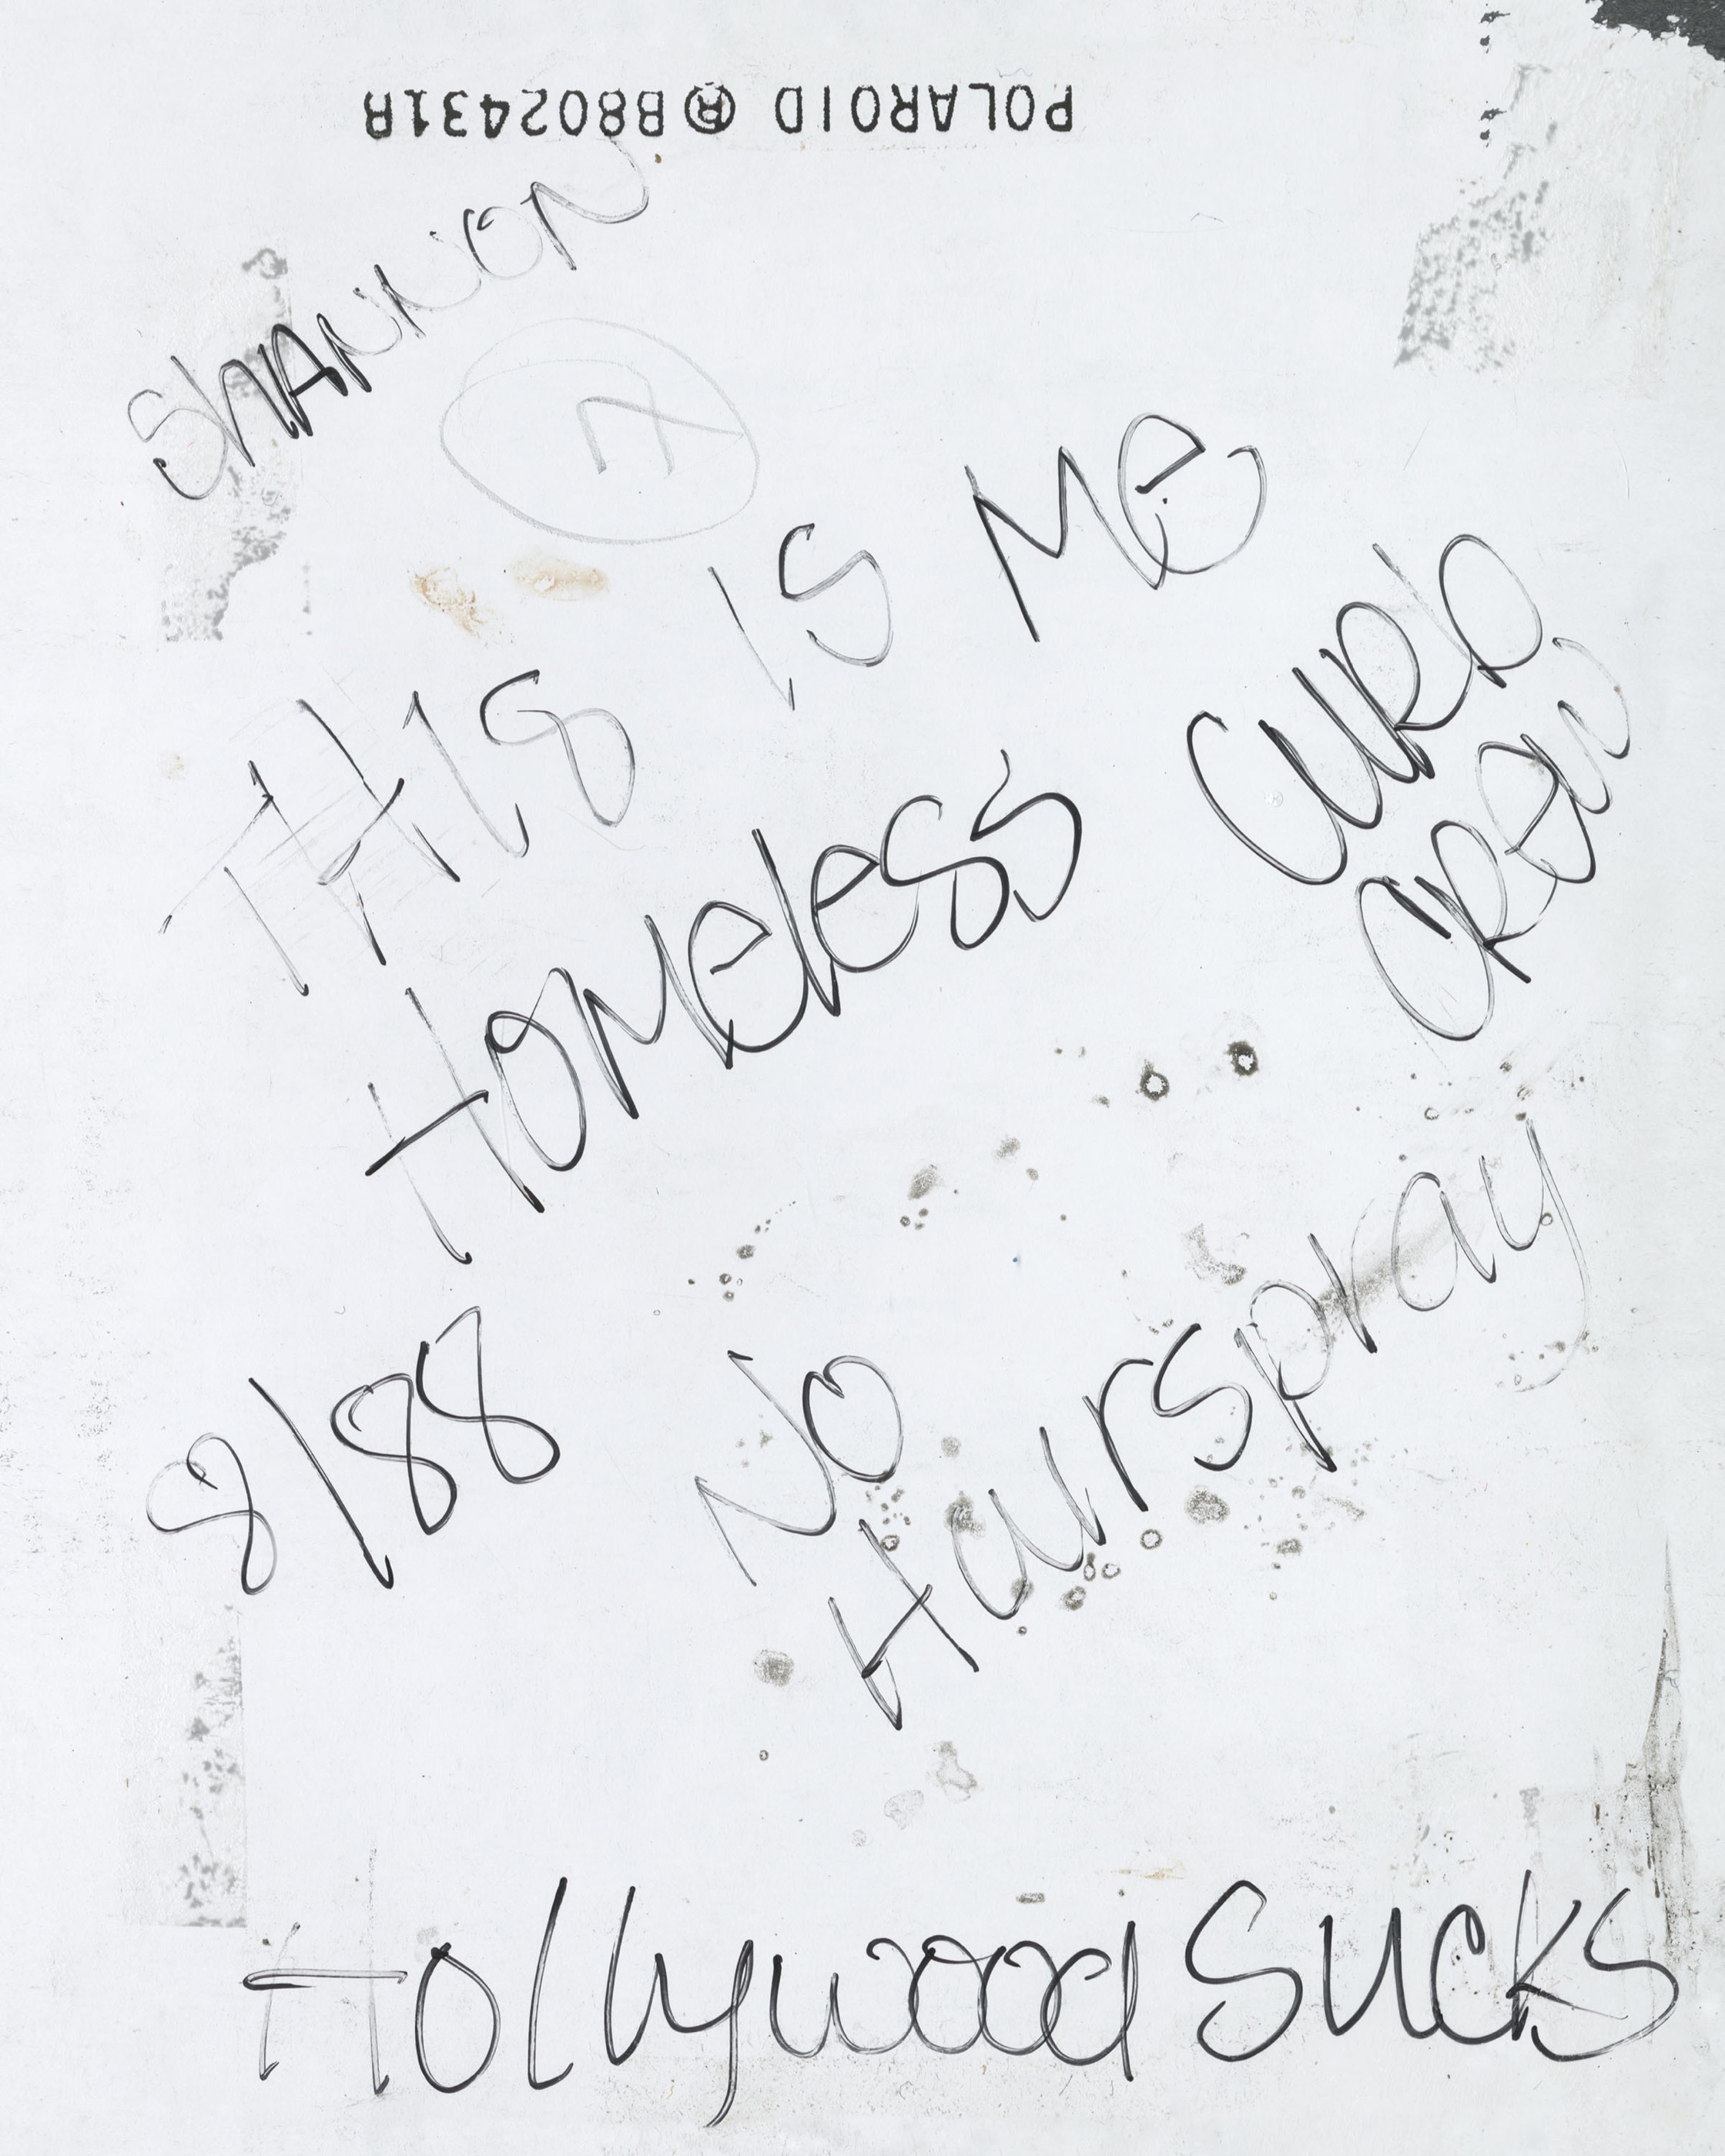 POLAROID ® B802431A
SHANNON
THIS IS Me
HOMeless CURb
CRew
8/88
NO
Hairspray
Hollywood SUCKS